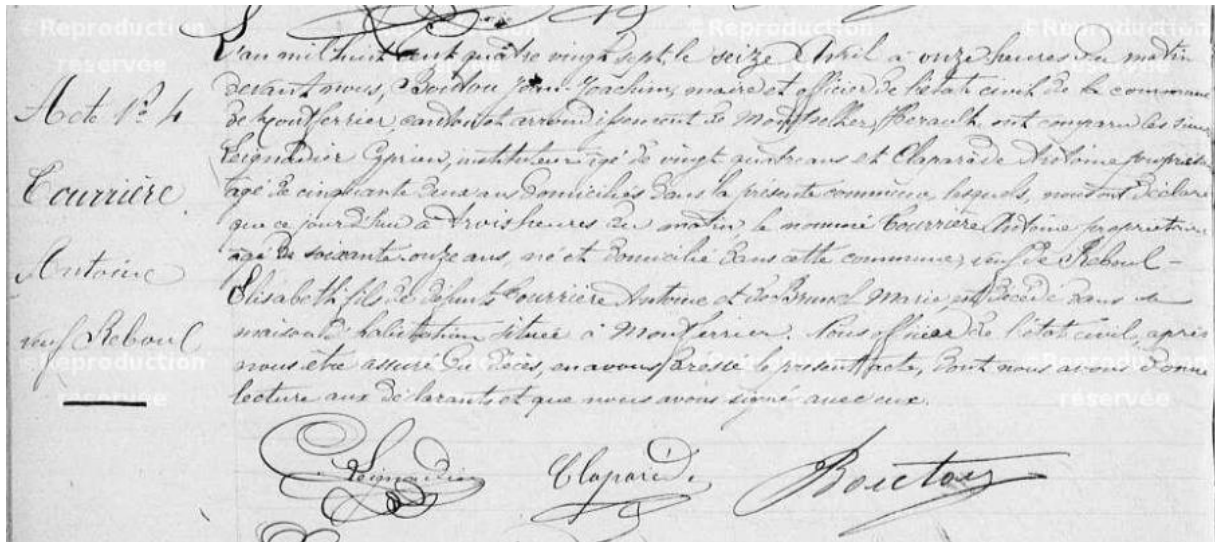 Acte Nº 4
Courrière
Antoine
veuf Reboul
L'an mil huit cent quatre vingt sept, le seize Avril à onze heures du matin
devant nous, Jean-Joachim, maire et officier de l'état civil de la commune
de Montferrier, canton et arrondissement de Montpellier, Herault, ont comparu les sieurs
Cyprien, instituteur agé de vingt quatre ans et Claparède Antoine propriétaire
agé de cinquante deux ans domiciliés dans la présente commune, lesquels, nous ont déclaré
que ce jour d'hui à trois heures du matin le nommé Courrière Antoine propriétaire
agé de soixante onze ans, né et domicilié dans cette commune, veuf de Reboul -
Elisabeth fils de défunts Courrière Antoine et de Brunel Marie, est décédé dans sa
maison d'habitation située à Montferrier. Nous officier de l'état civil, après
nous être assuré du décès, en avons dressé le présent acte, dont nous avons donné
lecture aux déclarants et que nous avons signé avec eux.
Claparède
© Reproduction
réservée